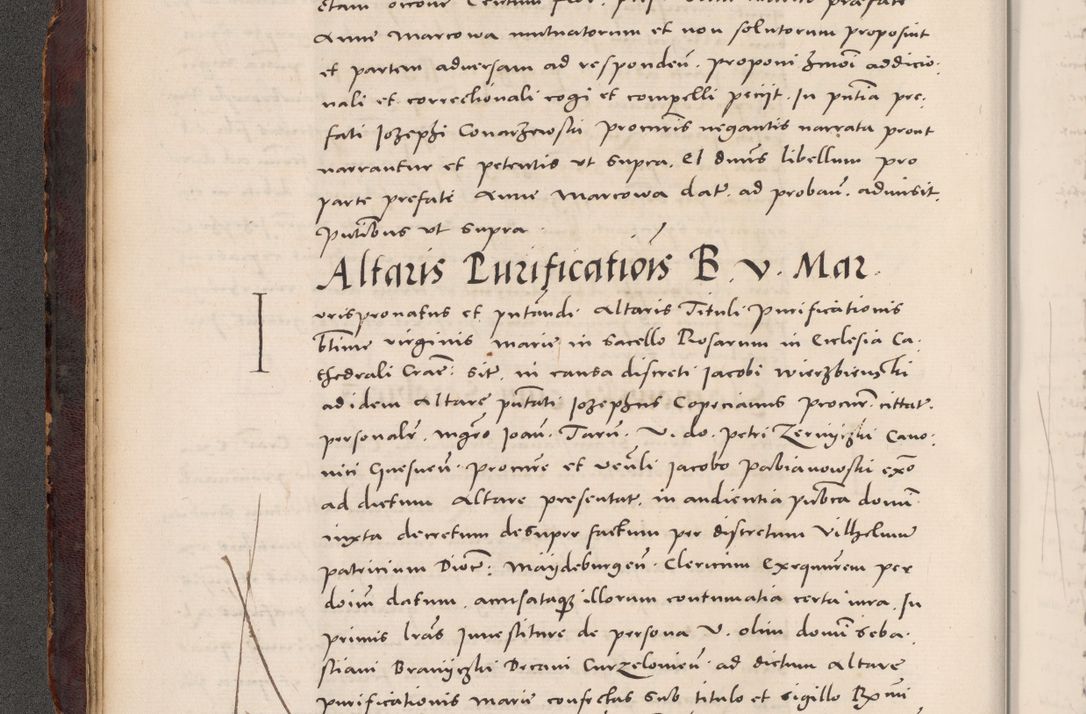 Anne Marcowa mutuatorum et non solutorum proposuit
et partem adversam ad responden. proponi addicio
nali et correctionali cogi et compelli peciit. In pntia pre
fati Iozephi Conarzewski procuris negantis narrata prout
narrantur et petentis ut supra. libellum pro
parte prefate Anne Marcowa dat. ad proban. admisit.
pntibus ut supra
Altaris Purificatiois B. V. Mar.
Iurispronatus et pntandi Altaris Tituli Purificationis
btime virginis Marie in Sacello Rosarum in Ecclesia Ca
thedrali Crac: sit. in causa discreti Iacobi Wierzbienski
ad idem Altare pntati Iozephus Copecianus Procur. cittat.
personalr. mgro Ioan. Tarn. V. do. Petri Cano
nici Gnesnen. Procure et Iacobo Pabianowski exo
ad dictum Altare presentat. in audientia publca domi
iuxta decretum desuper factum per discretum Vilhelmum
patricium Dioc: Maydeburgen. Clericum per
datum. accusataque illorum contumatia certa iura. In
primis lras Investiture de persona V. olim domi Seba
stiani Decani Curzelovien. ad dictum Altare
purificationis Marie confectas sub titulo et sigillo